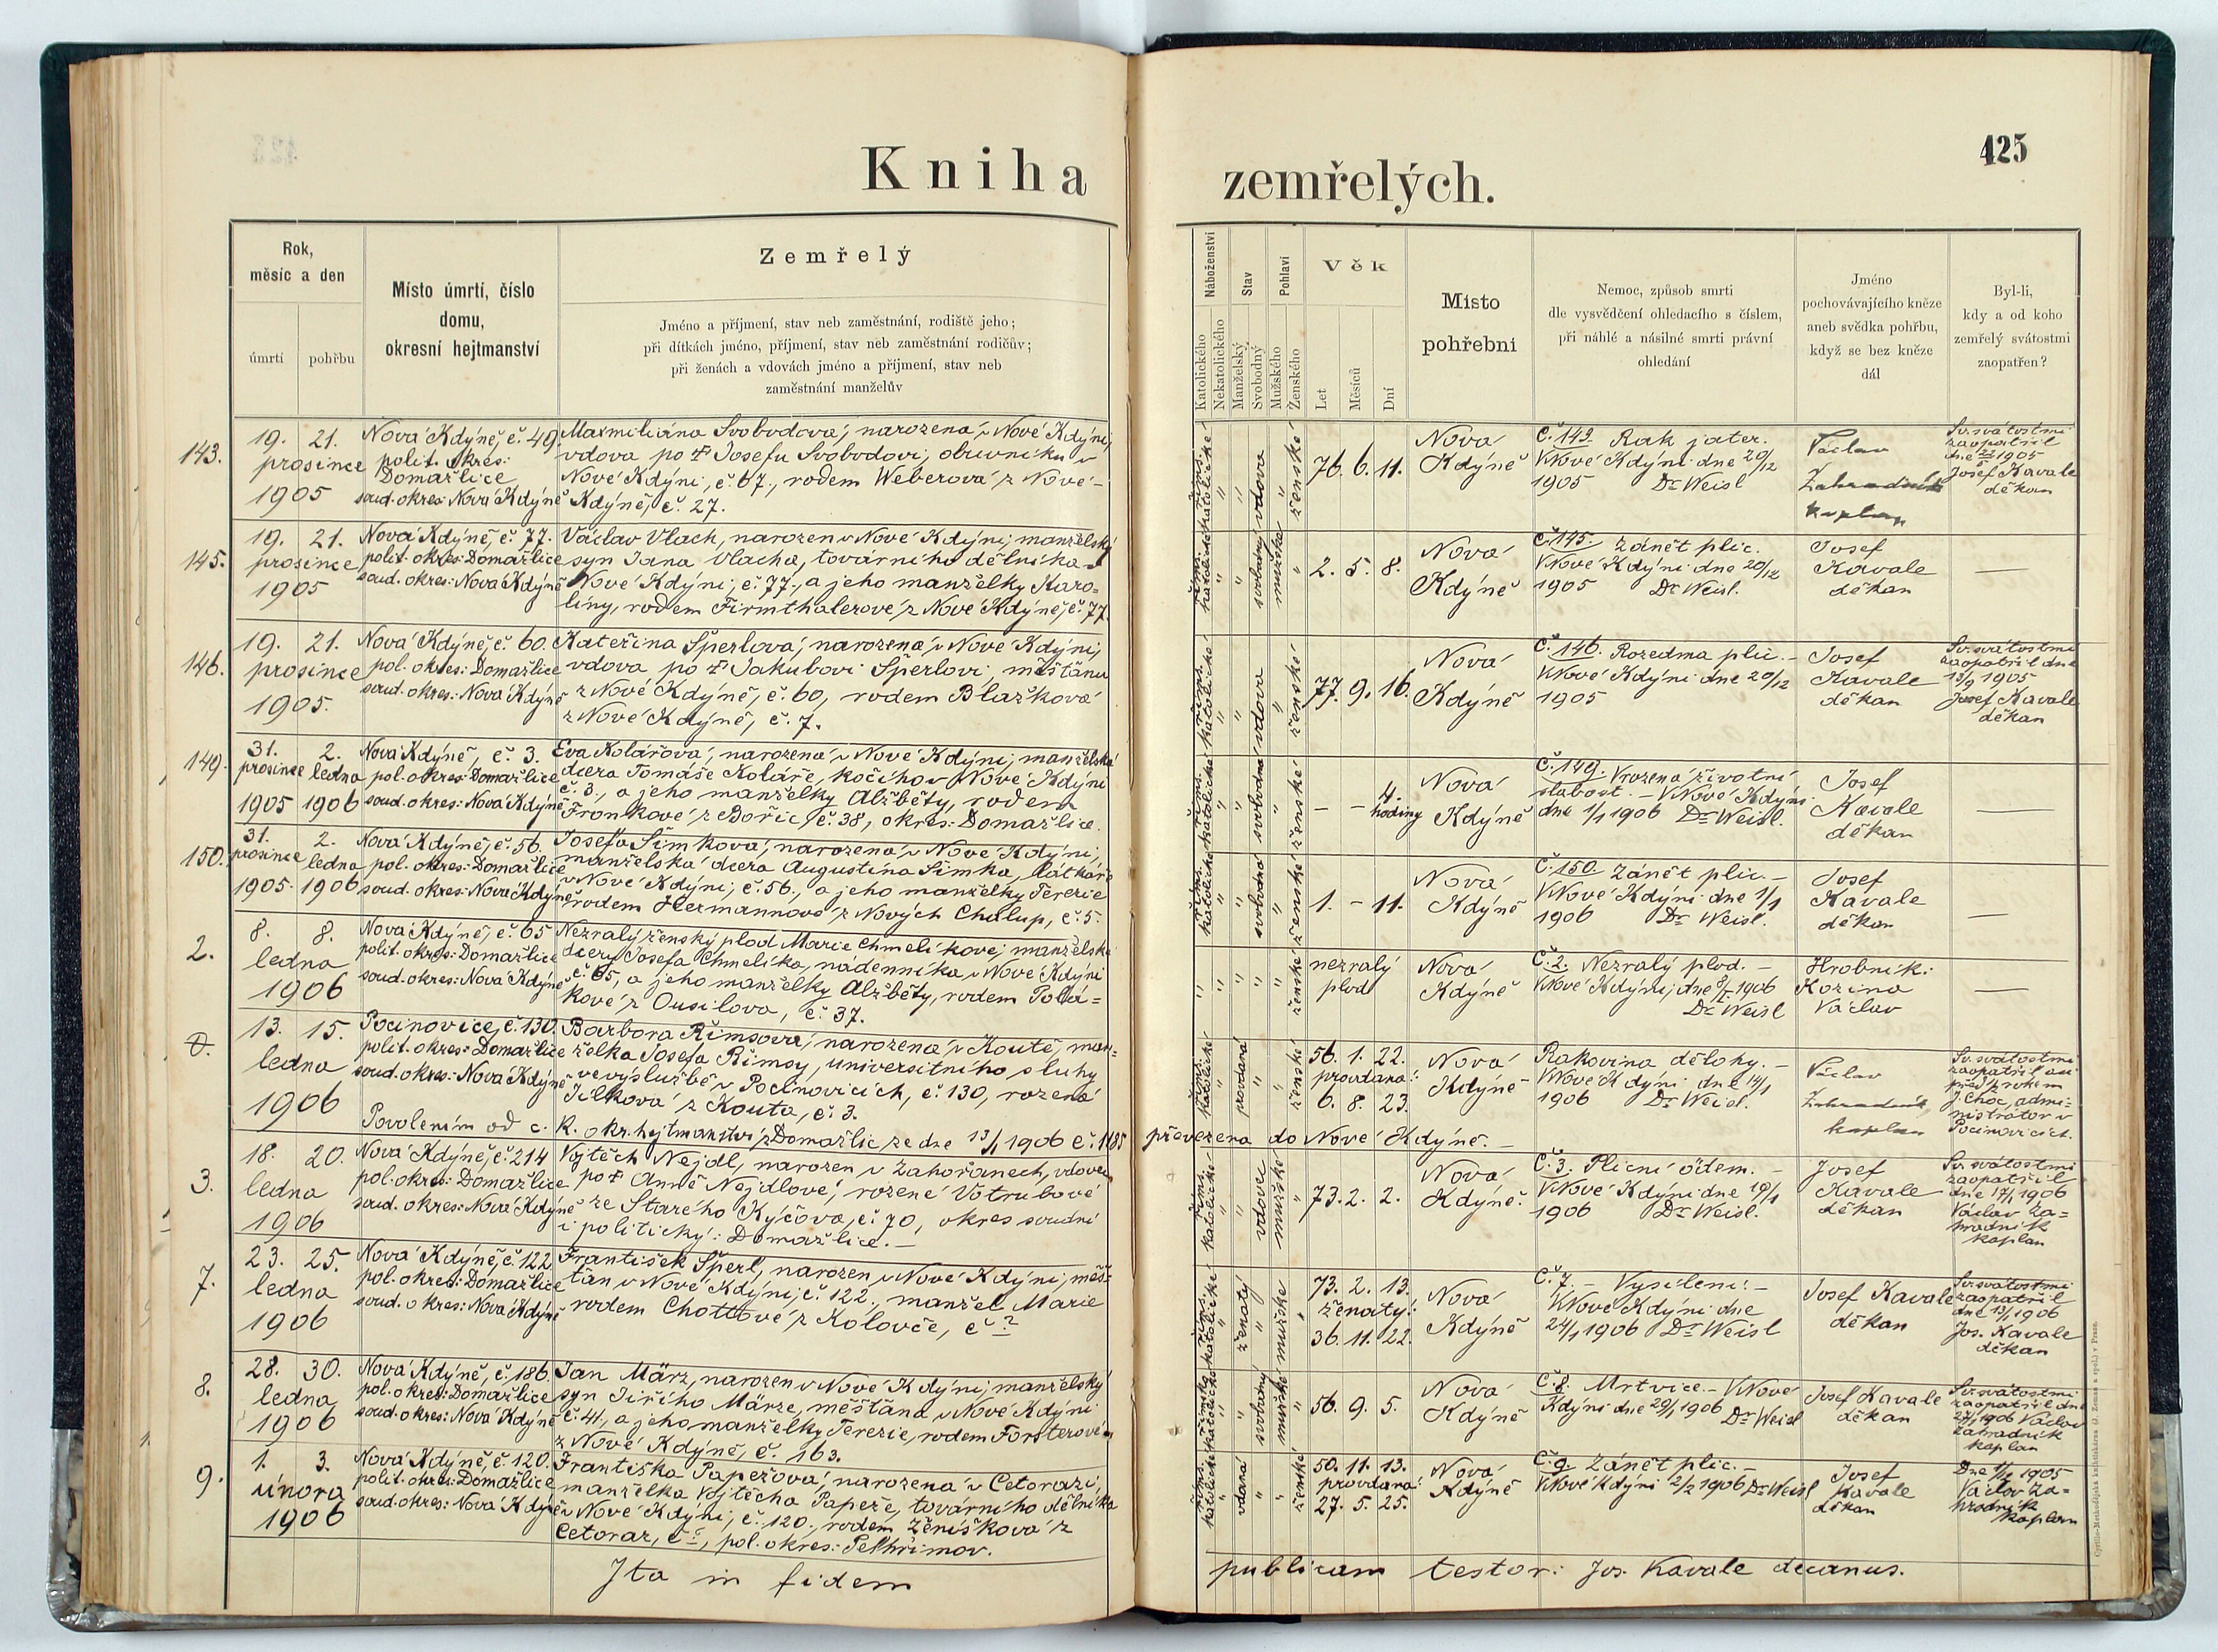 425
Kniha zemřelých.
Rok,
měsíc a den
úmrtí
pohřbu
Místo úmrtí, číslo
domu,
okresní hejtmanství
Zemřelý
Jméno a příjmení, stav neb zaměstnání, rodiště jeho;
při dítkách jméno, příjmení, stav neb zaměstnání rodičův;
při ženách a vdovách jméno a příjmení, stav neb
zaměstnání manželův
Náboženství
Katolického
Nekatolického
Stav
Manželský
Svobodný
Pohlaví
Mužského
Ženského
Věk
Let
Měsíců
Dní
Místo
pohřební
Nemoc, způsob smrti
dle vysvědčení ohledacího s číslem,
při náhlé a násilné smrti právní
ohledání
Jméno
pochovávajícího kněze
aneb svědka pohřbu,
když se bez kněze
dál
Byl-li,
kdy a od koho
zemřelý svátostmi
zaopatřen?
143.
19. 21.
prosince
1905
Nová Kdýně, č. 49.
polit. okres:
Domažlice
soud. okres: Nová Kdýně
Maxmiliána Svobodová, narozená v Nové Kdýni,
vdova po † Josefu Svobodovi, obuvníku v
Nové Kdýni, č. 67., rodem Weberová z Nové
Kdýně, č. 27.
říms. katolické
vdova
ženské
76. 6. 11.
Nová
Kdýně
Č. 143. Rak jater.
V Nové Kdýni dne 20/12
1905 Dr Weisl
Václav
Zahradník
kaplan
Sv. svátostmi
zaopatřil
1905
Josef Kavale
děkan
145.
19. 21.
prosince
1905
Nová Kdýně, č. 77.
polit. okres: Domažlice
soud. okres: Nová Kdýně
Václav Vlach, narozen v Nové Kdýni, manželský
syn Jana Vlacha, továrního dělníka v
Nové Kdýni, č. 77., a jeho manželky Karo=
líny, rodem Firmthalerové z Nové Kdýně, č. 77.
říms. katolické
svobodný
mužské
2. 5. 8.
Nová
Kdýně
Č. 145. Zánět plic.
V Nové Kdýni dne 20/12
1905 Dr Weisl.
Josef
Kavale
děkan
—
146.
19. 21.
prosince
1905.
Nová Kdýně, č. 60.
pol. okres: Domažlice
soud. okres: Nová Kdýně
Kateřina Šperlová, narozená v Nové Kdýni,
vdova po † Jakubovi Šperlovi, měšťanu
z Nové Kdýně, č. 60, rodem Blažková
z Nové Kdýně, č. 7.
říms. katolické
vdova
ženské
77. 9. 16.
Nová
Kdýně
Č. 146. Rozedma plic. —
V Nové Kdýni dne 20/12
1905
Josef
Kavale
děkan
Sv. svátostmi
zaopatřil dne
13/9 1905
Josef Kavale
děkan
149.
31. 2.
prosince ledna
1905 1906
Nová Kdýně, č. 3.
pol. okres: Domažlice
soud. okres: Nová Kdýně
Eva Kolářová, narozená v Nové Kdýni, manželská
dcera Tomáše Koláře, kočího v Nové Kdýni
č. 3., a jeho manželky Alžběty, rodem
Fronkové z Bořic, č. 38, okres: Domažlice.
říms. katolické
svobodná
ženské
— — 4.
hodiny
Nová
Kdýně
Č. 149. Vrozená životní
slabost. — V Nové Kdýni
dne 1/1 1906 Dr Weisl.
Josef
Kavale
děkan
—
150.
31. 2.
prosince ledna
1905. 1906
Nová Kdýně, č. 56.
pol. okres: Domažlice
soud. okres: Nová Kdýně
Josefa Šimková, narozená v Nové Kdýni,
manželská dcera Augustina Šimka, látkaře
v Nové Kdýni, č. 56., a jeho manželky Terezie
rodem Hermannové z Nových Chalup, č. 5.
říms. katolické
svobodná
ženské
1. — 11.
Nová
Kdýně
Č. 150. Zánět plic. —
V Nové Kdýni dne 1/1
1906 Dr Weisl.
Josef
Kavale
děkan
—
2.
8. 8.
ledna
1906
Nová Kdýně, č. 65
polit. okres: Domažlice
soud. okres: Nová Kdýně
Nezralý ženský plod Marie Chmelíkové, manželské
dcery Josefa Chmelíka, nádenníka v Nové Kdýni
č. 65, a jeho manželky Alžběty, rodem Polá=
kové z Ousilova, č. 37.
ženské
nezralý
plod
Nová
Kdýně
Č. 2. Nezralý plod. —
V Nové Kdýni, dne 9/1 1906
Dr Weisl
Hrobník:
Kozina
Václav
—
0.
13. 15.
ledna
1906
Pocinovice, č. 130.
polit. okres: Domažlice
soud. okres: Nová Kdýně
Barbora Římsová, narozená v Koutě, man=
želka Josefa Římsy, universitního sluhy
ve výslužbě v Pocinovicích, č. 130, rozená
Jílková z Kouta, č. 3.
říms. katolické
provdaná
ženské
56. 1. 22.
provdaná:
6. 8. 23.
Nová
Kdýně
Rakovina dělohy. —
V Nové Kdýni dne 14/1
1906 Dr Weisl.
Václav
Zahradník
kaplan
Sv. svátostmi
zaopatřil asi
před rokem
J. Choc, admi=
nistrátor v
Pocinovicích.
Povolením od c. k. okr. hejtmanství z Domažlic ze dne 13/1 1906 č. 1185 převezena do Nové Kdýně. —
3.
18. 20.
ledna
1906
Nová Kdýně, č. 214
pol. okres: Domažlice
soud. okres: Nová Kdýně
Vojtěch Nejdl, narozen v Zahořanech, vdovec
po † Anně Nejdlové, rozené Votrubové
ze Starého Kýčova, č. 70, okres soudní
i politický: Domažlice. —
říms. katolické
vdovec
mužské
73. 2. 2.
Nová
Kdýně.
Č. 3. Plicní ödem. —
V Nové Kdýni dne 19/1
1906 Dr Weisl.
Josef
Kavale
děkan
Sv. svátostmi
zaopatřil
dne 17/1 1906
Václav Za=
hradník
kaplan
7.
23. 25.
ledna
1906
Nová Kdýně, č. 122
pol. okres: Domažlice
soud. okres: Nová Kdýně
František Šperl, narozen v Nové Kdýni, měš=
ťan v Nové Kdýni, č. 122., manžel Marie
rodem Chottové z Kolovče, č. ?
říms. katolické
ženatý
mužské
73. 2. 13.
ženatý:
36. 11. 22.
Nová
Kdýně
Č. 7. — Vysílení. —
V Nové Kdýni dne
24/1 1906 Dr Weisl
Josef Kavale
děkan
Sv. svátostmi
zaopatřil
dne 13/1 1906
Jos. Kavale
děkan
8.
28. 30.
ledna
1906
Nová Kdýně, č. 186.
pol. okres: Domažlice
soud. okres: Nová Kdýně
Jan März, narozen v Nové Kdýni, manželský
syn Jiřího Märze, měšťana v Nové Kdýni
č. 41, a jeho manželky Terezie, rodem Försterové
z Nové Kdýně, č. 163.
římsko katolické
svobodný
mužské
56. 9. 5.
Nová
Kdýně
Č. 8. Mrtvice. — V Nové
Kdýni dne 29/1 1906 Dr Weisl
Josef Kavale
děkan
Sv. svátostmi
zaopatřil dne
27/1 1906 Václav
Zahradník
kaplan
9.
1. 3.
února
1906
Nová Kdýně, č. 120.
polit. okres: Domažlice
soud. okres: Nová Kdýně
Františka Papežová, narozená v Cetorazi,
manželka Vojtěcha Papeže, továrního dělníka
v Nové Kdýni, č. 120., rodem Ženíšková z
Cetoraz, č. , pol. okres: Pelhřimov.
říms. katolické
vdaná
ženské
50. 11. 13.
provdaná:
27. 5. 25.
Nová
Kdýně
Č. 9. Zánět plic. —
V Nové Kdýni 2/2 1906 Dr Weisl
Josef
Kavale
děkan
Dne 1905
Václav Za=
hradník
kaplan
Ita in fidem publicam testor: Jos. Kavale decanus.